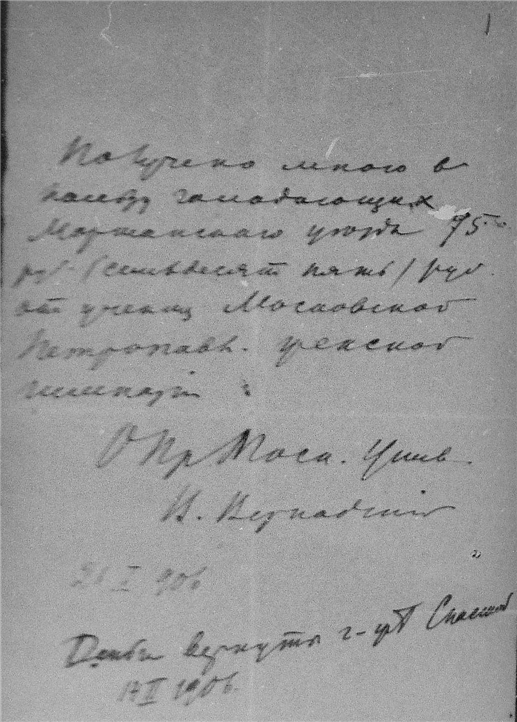 1
Получено мною в
пользу голодающих
Моршанского уезда 75
руб. (семьдесят пять) руб.
от учениц Московской
Петропавл. женской
гимназiи
О Пр Моск. Унив.
В. Вернадский
21 I 906
Деньги вернуты г-ж
17 II 1906.